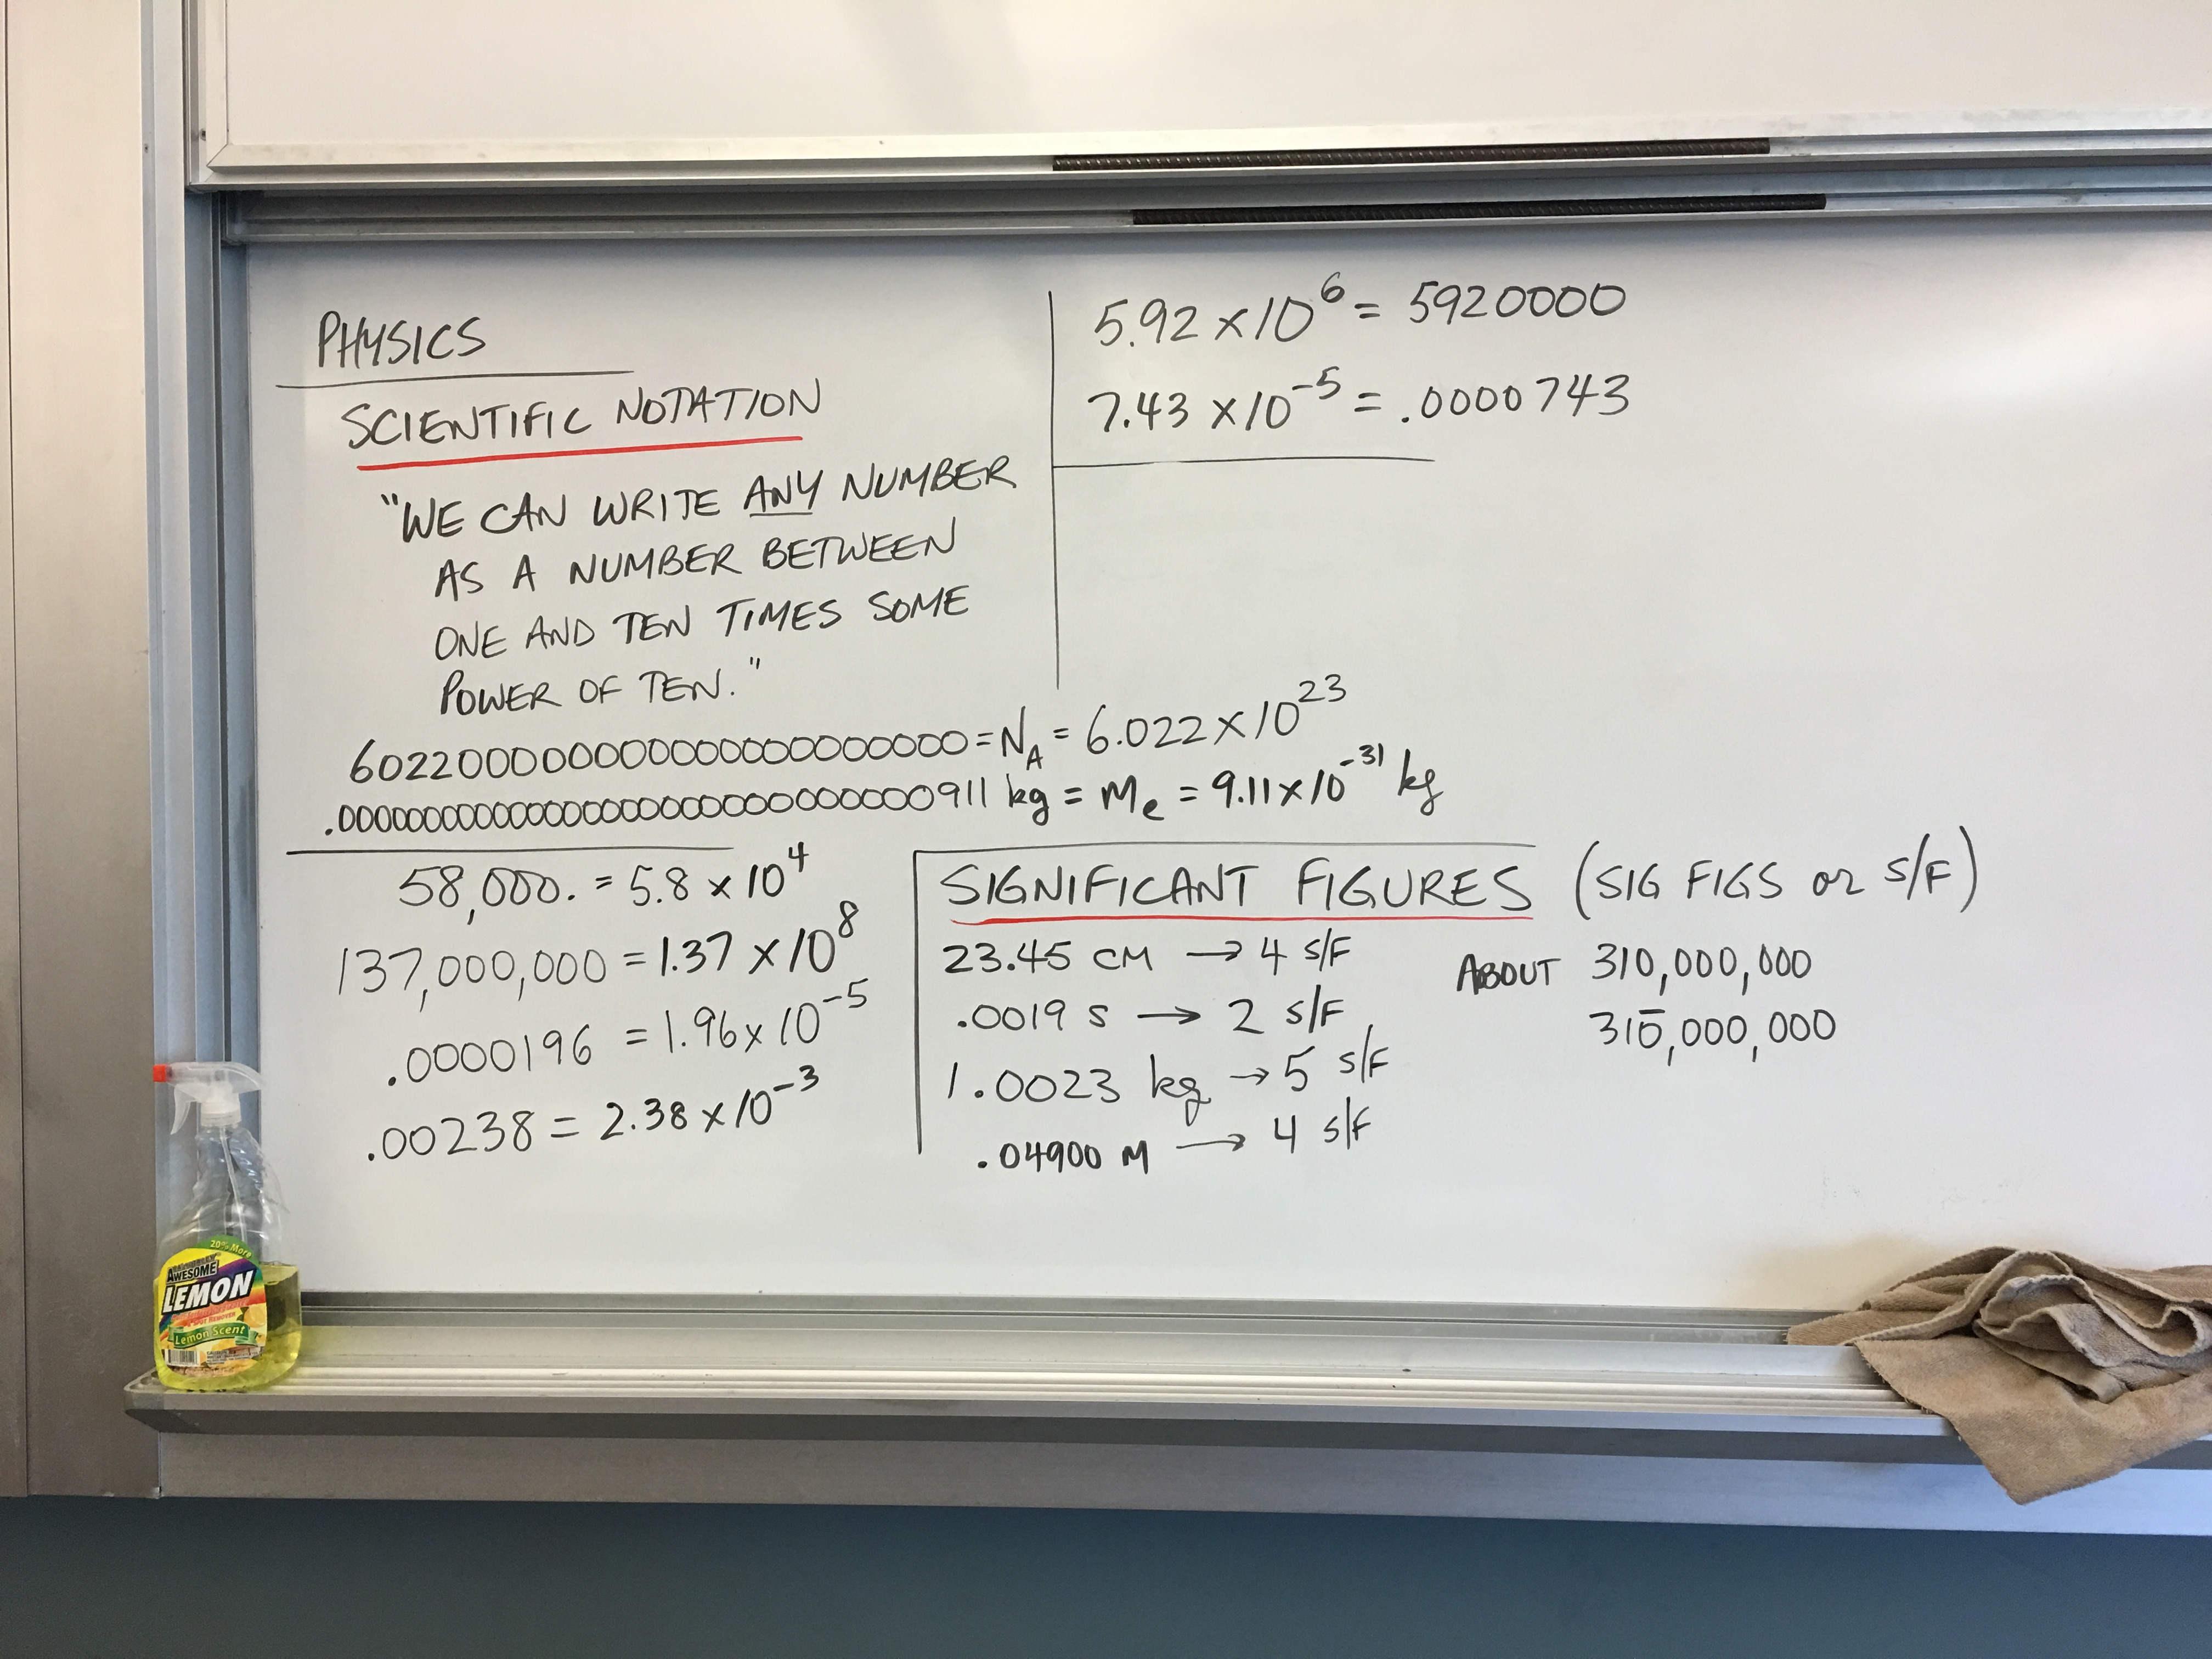 PHYSICS
SCIENTIFIC NOTATION
"WE CAN WRITE ANY NUMBER
AS A NUMBER BETWEEN
ONE AND TEN TIMES SOME
POWER OF TEN."
5.92 x 10⁶ = 5920000
7.43 x 10⁻⁵ = .0000743
602200000000000000000000 = N_A = 6.022 x 10²³
.000000000000000000000000000000911 kg = Me = 9.11 x 10⁻³¹ kg
58,000. = 5.8 x 10⁴
137,000,000 = 1.37 x 10⁸
.0000196 = 1.96 x 10⁻⁵
.00238 = 2.38 x 10⁻³
SIGNIFICANT FIGURES (SIG FIGS or S/F)
23.45 CM → 4 S/F
.0019 S → 2 S/F
1.0023 kg → 5 S/F
.04900 M → 4 S/F
ABOUT 310,000,000
310̅,000,000
20% More
AWESOME
LEMON
Lemon Scent